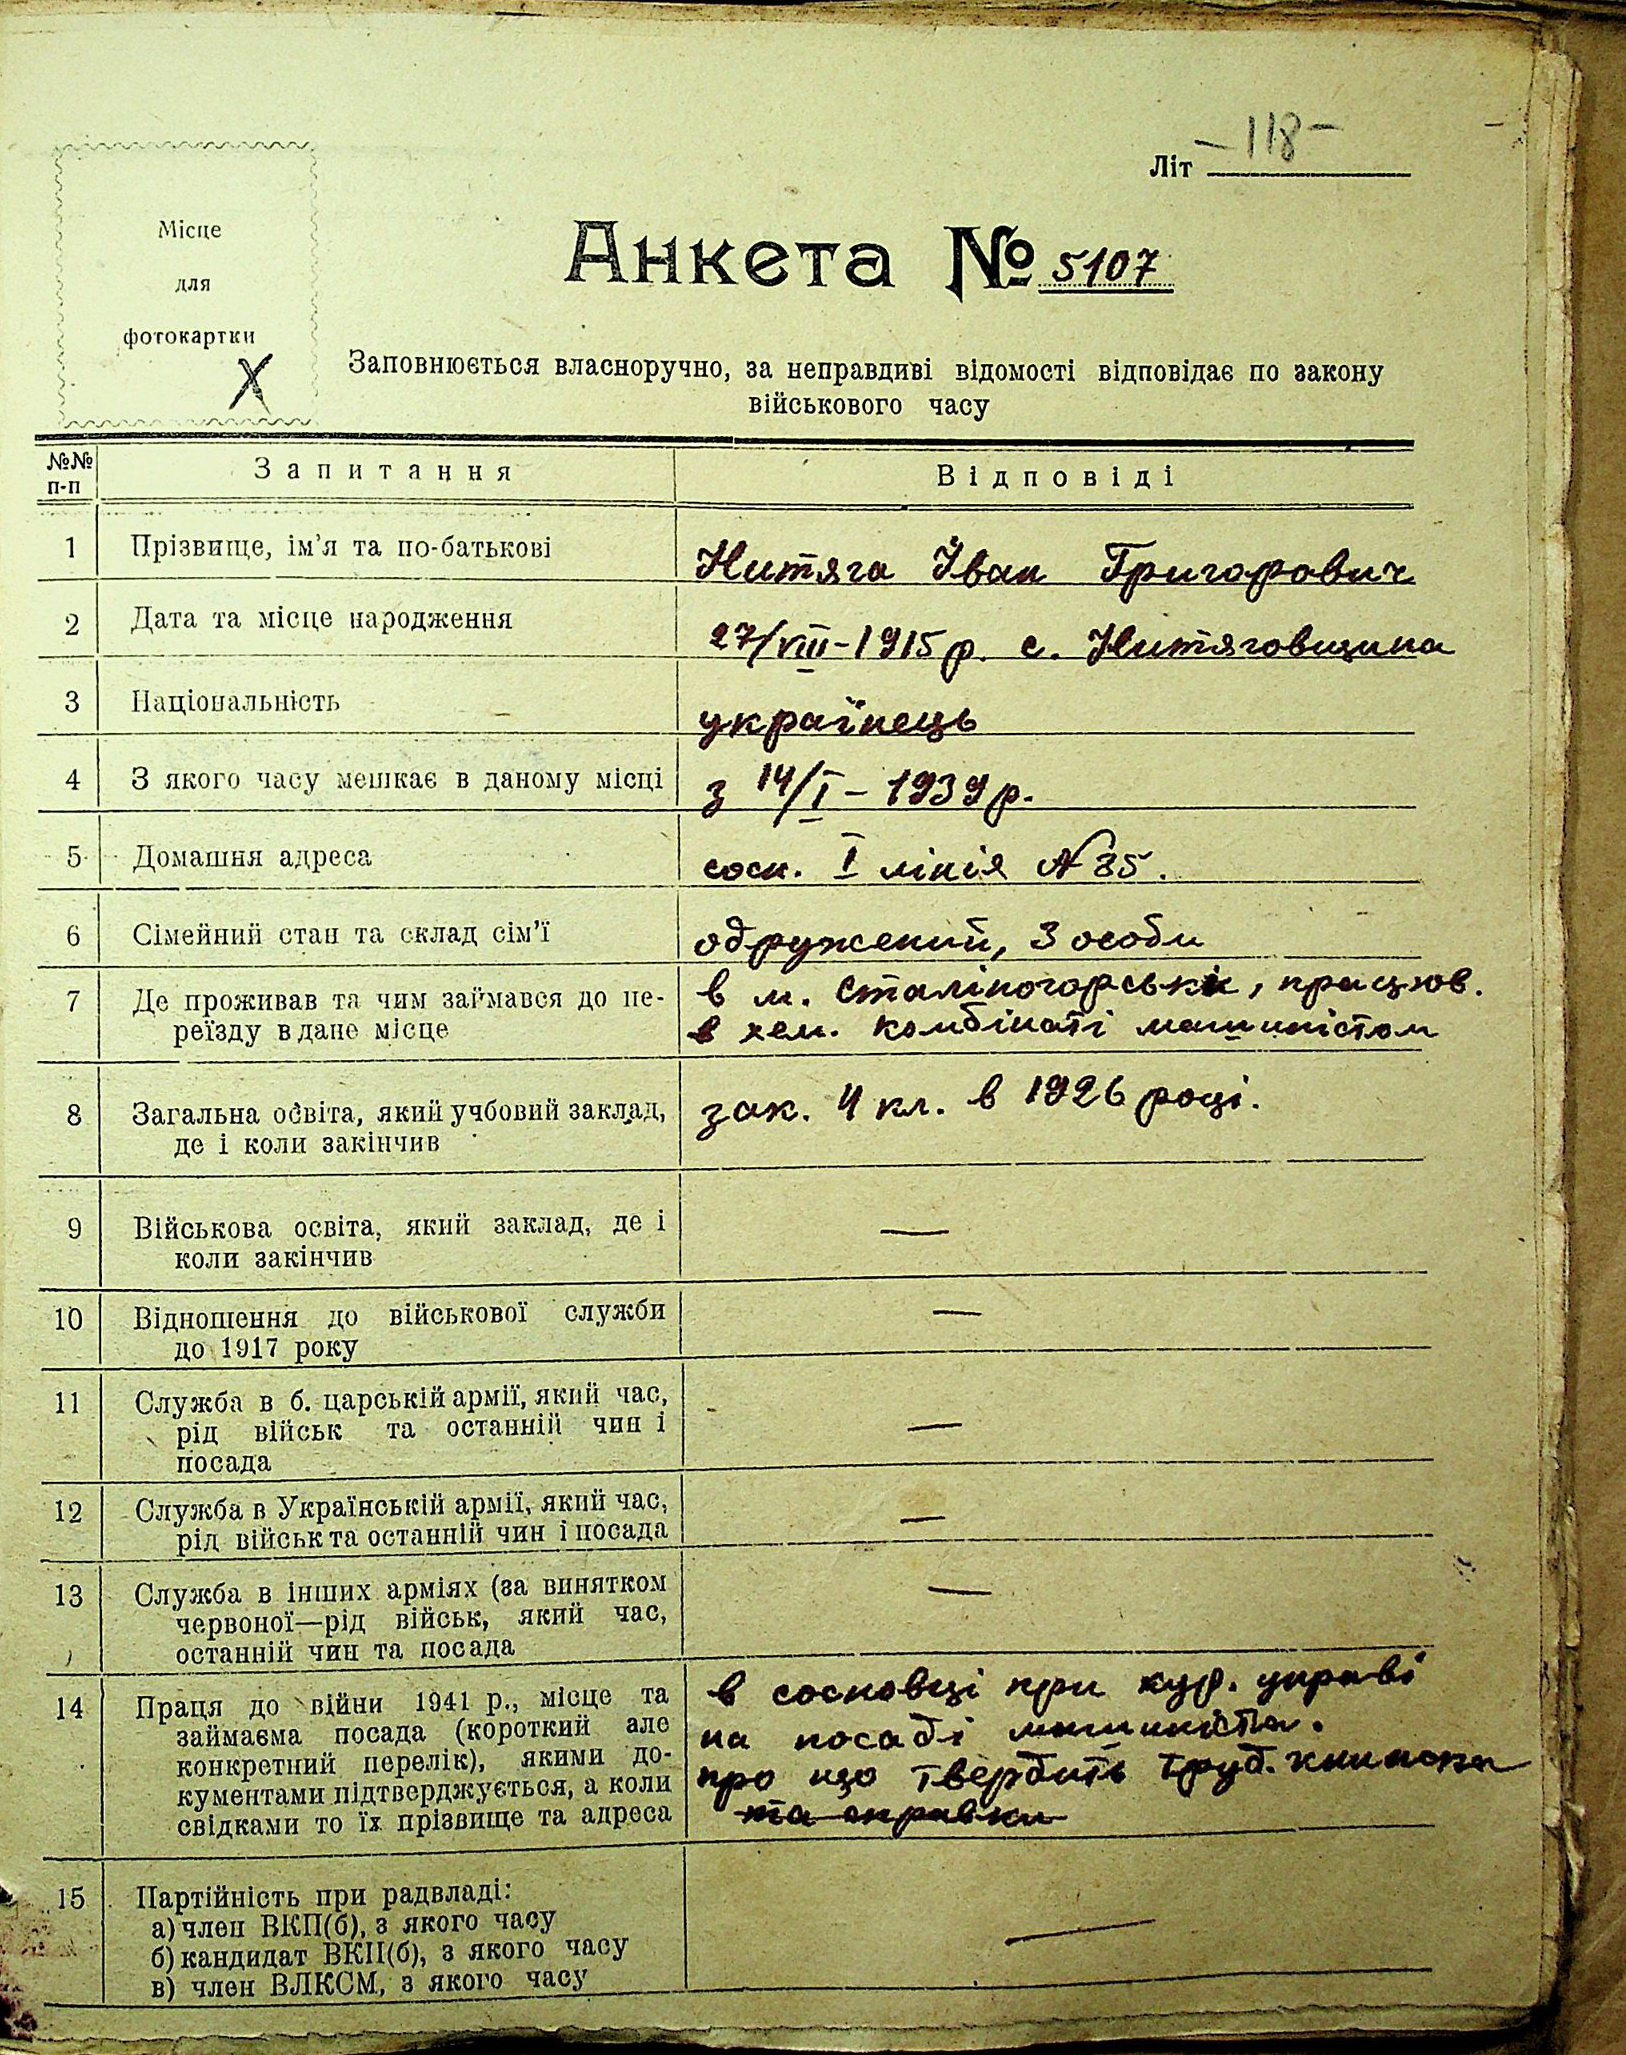 -118-
Літ
Місце
для
фотокартки
X
Анкета № 5107
Заповнюється власноручно, за неправдиві відомості відповідає по закону
військового часу
№№ п-п Запитання Відповіді
1 Прізвище, ім'я та по-батькові Нитяга Іван Григорович
2 Дата та місце народження 27/VIII-1915 р. с. Нитяговщина
3 Національність українець
4 З якого часу мешкає в даному місці з 14/I - 1939 р.
5 Домашня адреса сосн. I лінія № 35.
6 Сімейний стан та склад сім'ї одружений, 3 особи
7 Де проживав та чим займався до пе- в м. Сталіногорськ, працюв.
реїзду в дане місце в хем. комбінаті машиністом
8 Загальна освіта, який учбовий заклад, зак. 4 кл. в 1926 році.
де і коли закінчив
9 Військова освіта, який заклад, де і —
коли закінчив
10 Відношення до військової служби —
до 1917 року
11 Служба в б. царській армії, який час,
рід військ та останній чин і —
посада
12 Служба в Українській армії, який час, —
рід військ та останній чин і посада
13 Служба в інших арміях (за винятком —
червоної—рід військ, який час,
останній чин та посада
14 Праця до війни 1941 р., місце та в сосновці при куд. управі
займаєма посада (короткий але на посаді машиніста.
конкретний перелік), якими до- про що твердить труд. книжка
кументами підтверджується, а коли та справки
свідками то їх прізвище та адреса
15 Партійність при радвладі:
а) член ВКП(б), з якого часу —
б) кандидат ВКП(б), з якого часу
в) член ВЛКСМ, з якого часу